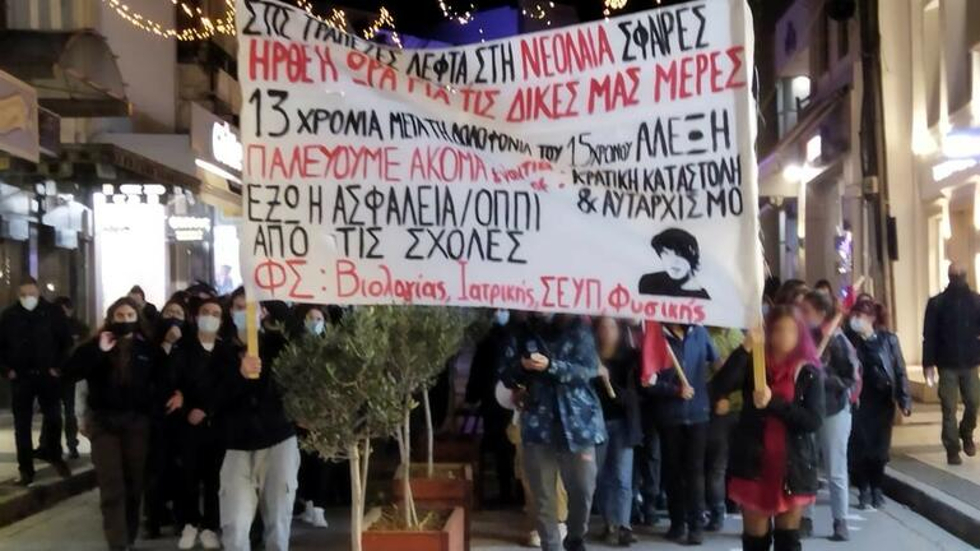 ΣΤΙΣ ΤΡΑΠΕΖΕΣ ΛΕΦΤΑ ΣΤΗ ΝΕΟΛΑΙΑ ΣΦΑΙΡΕΣ
ΗΡΘΕ Η ΩΡΑ ΓΙΑ ΤΙΣ ΔΙΚΕΣ ΜΑΣ ΜΕΡΕΣ
13 ΧΡΟΝΙΑ ΜΕΤΑ ΤΗ ΔΟΛΟΦΟΝΙΑ ΤΟΥ 15ΧΡΟΝΟΥ ΑΛΕΞΗ
ΠΑΛΕΥΟΥΜΕ ΑΚΟΜΑ ΚΡΑΤΙΚΗ ΚΑΤΑΣΤΟΛΗ
& ΑΥΤΑΡΧΙΣΜΟ
ΕΞΩ Η ΑΣΦΑΛΕΙΑ/ΟΠΠΙ
ΑΠΟ ΤΙΣ ΣΧΟΛΕΣ
ΦΣ: Βιολογίας, Ιατρικής, ΣΕΥΠ, Φυσικής